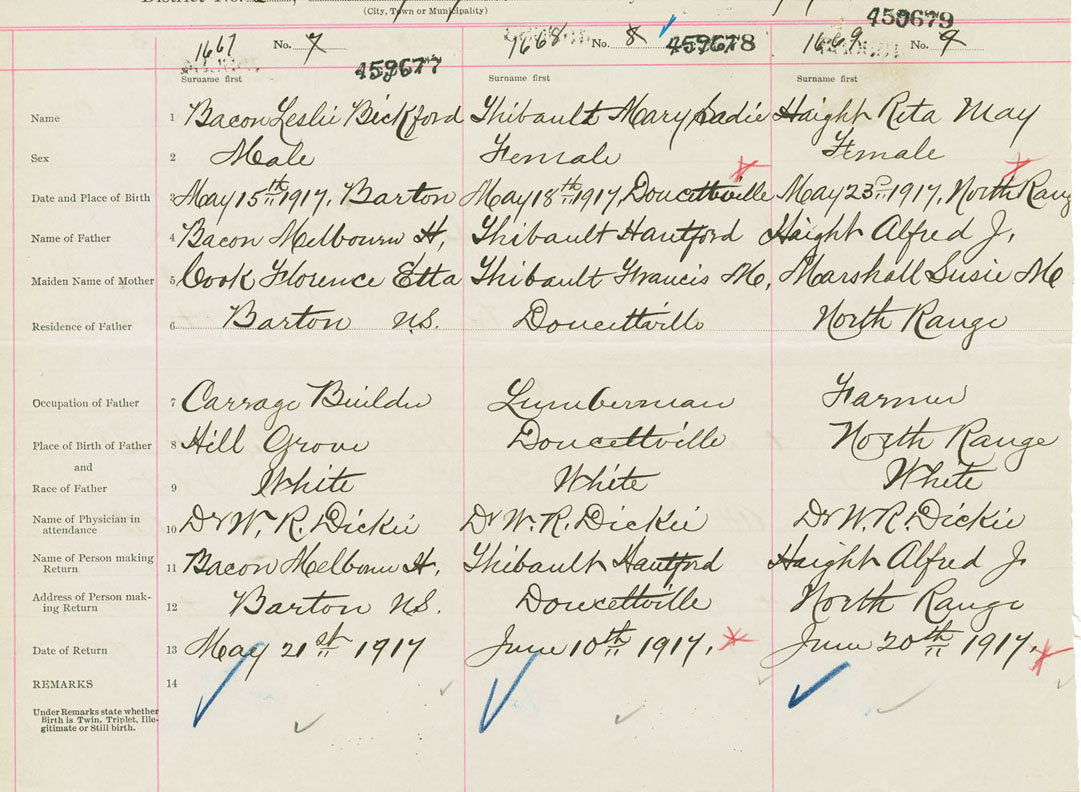 District No.
(City, Town or Municipality)
1667 No. 7 459677
1668 No. 8 459678
1669 No. 9 459679
Surname first Surname first Surname first
Name 1 Bacon Leslie Bickford Thibault Mary Sadie Haight Rita May
Sex 2 Male Female Female
Date and Place of Birth 3 May 15th 1917, Barton May 18th 1917, Doucettville May 23rd 1917, North Rang
Name of Father 4 Bacon Melbourn H, Thibault Hantford Haight Alfred J.
Maiden Name of Mother 5 Cook Florence Etta Thibault Francis M, Marshall Susie M
Residence of Father 6 Barton N.S. Doucettville North Range
Occupation of Father 7 Carrage Builder Lumberman Farmer
Place of Birth of Father 8 Hill Grove Doucettville North Range
and
Race of Father 9 White White White
Name of Physician in
attendance 10 Dr W. R. Dickie Dr W. R. Dickie Dr W. R. Dickie
Name of Person making
Return 11 Bacon Melbourn H, Thibault Hantford Haight Alfred J
Address of Person mak-
ing Return 12 Barton N.S. Doucettville North Range
Date of Return 13 May 21st 1917 June 10th 1917. June 20th 1917.
REMARKS 14
Under Remarks state whether
Birth is Twin, Triplet, Ille-
gitimate or Still birth.